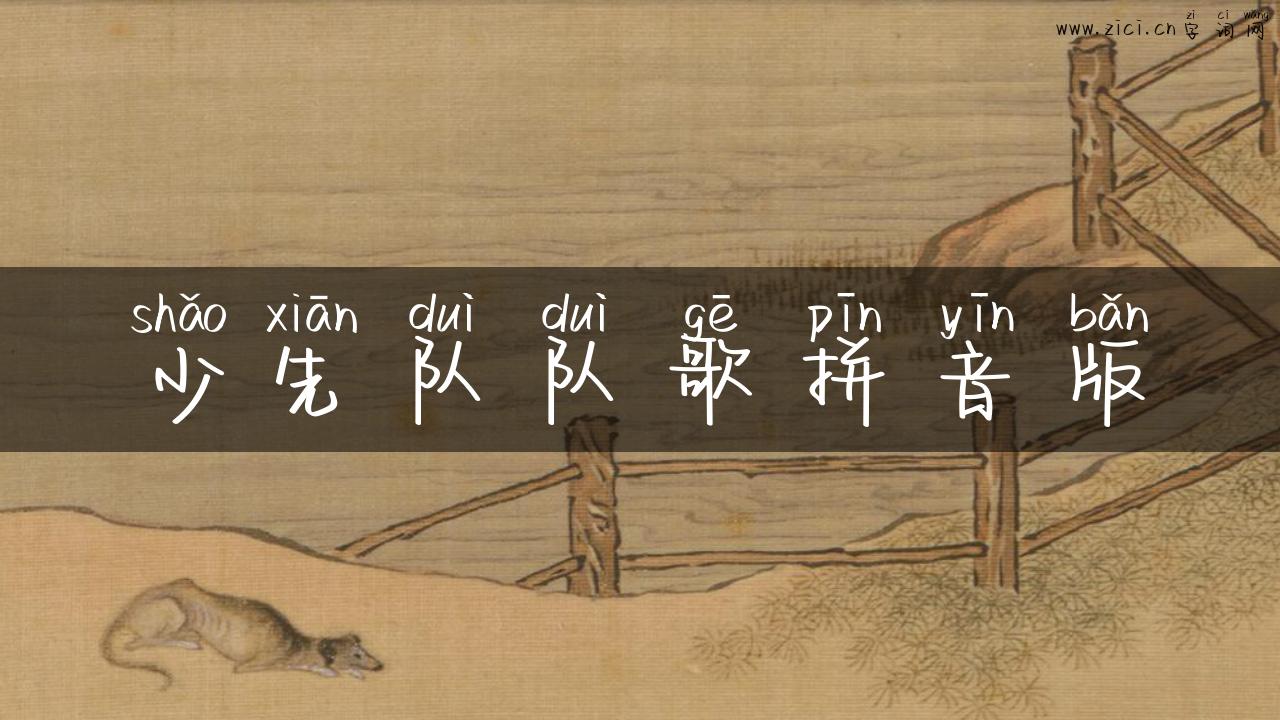 zì cí wǎng
www.zici.cn 字词网
shǎo xiān duì duì gē pīn yīn bǎn
少先队队歌拼音版